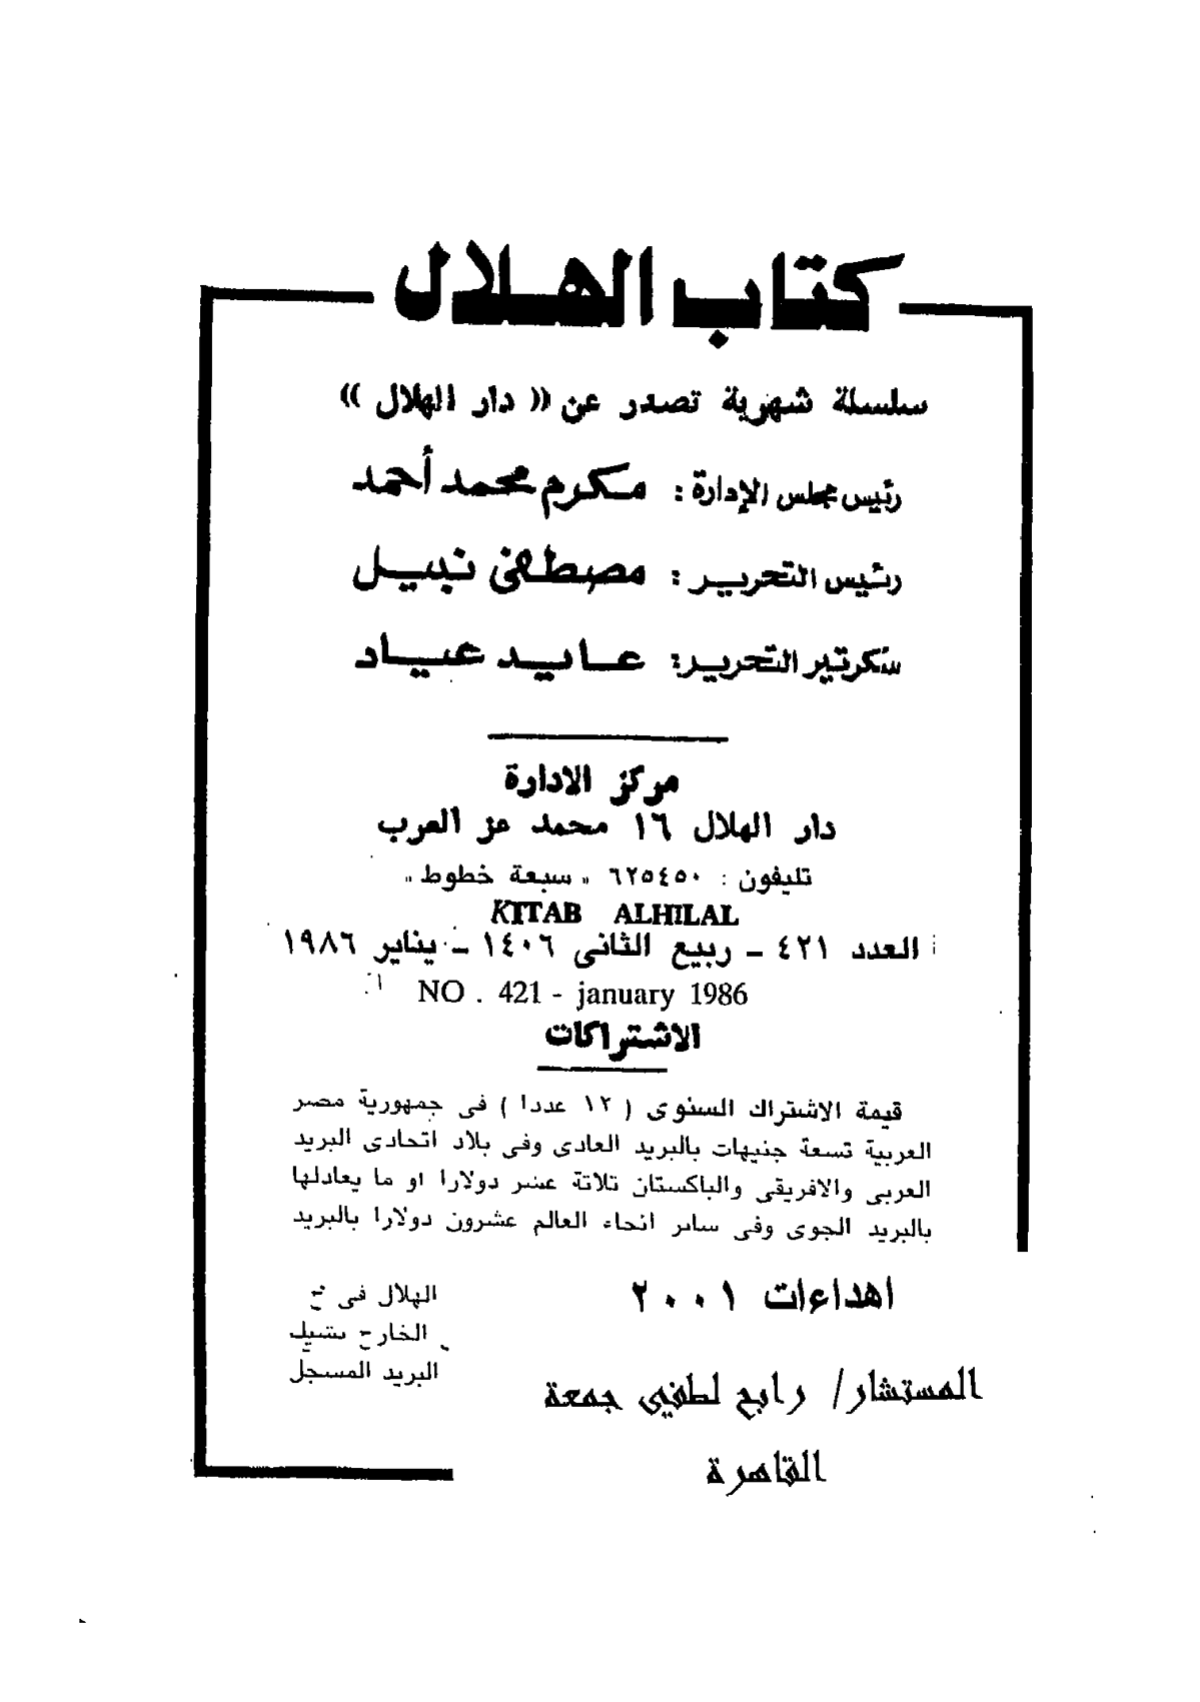 كتاب الهلال
سلسلة شهرية تصدر عن «دار الهلال»
رئيس مجلس الإدارة : مكرم محمد أحمد
رئيس التحرير : مصطفى نبيل
سكرتير التحرير : عايد عياد
مركز الادارة
دار الهلال ١٦ محمد عز العرب
تليفون : ٦٢٥٤٥٠ " سبعة خطوط "
KITAB ALHILAL
العدد ٤٢١ - ربيع الثانى ١٤٠٦ - يناير ١٩٨٦
NO . 421 - january 1986
الاشتراكات
قيمة الاشتراك السنوى ( ١٢ عددا ) فى جمهورية مصر
العربية تسعة جنيهات بالبريد العادى وفى بلاد اتحادى البريد
العربى والافريقى والباكستان ثلاثة عشر دولارا او ما يعادلها
بالبريد الجوى وفى سائر انحاء العالم عشرون دولارا بالبريد
الهلال فى
الخارج بشيك
البريد المسجل
اهداءات ٢٠٠١
المستشار/ رابح لطفي جمعة
القاهرة